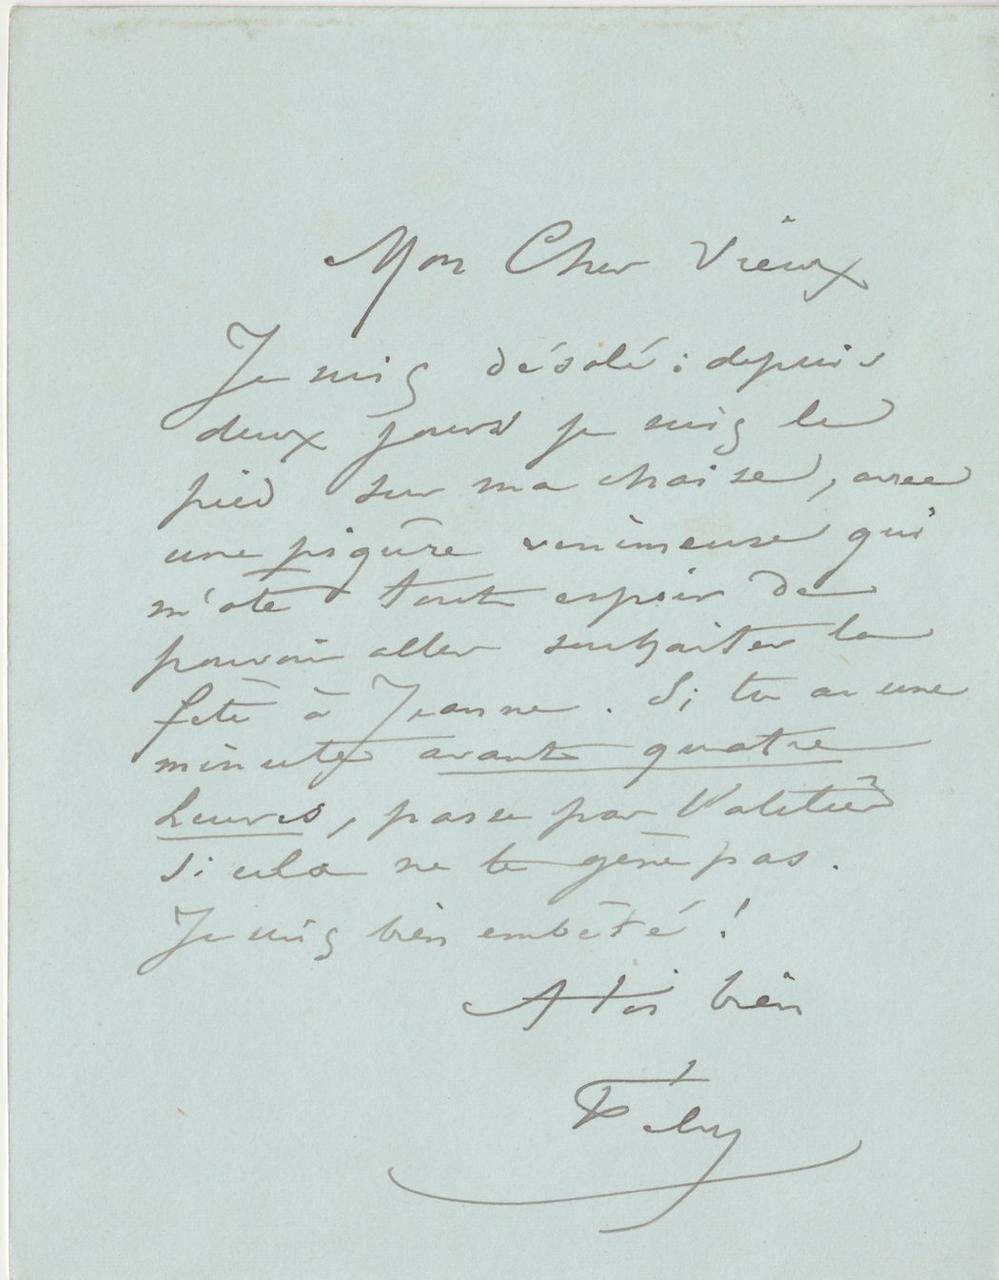 Mon Cher Vieux
Je suis désolé : depuis
deux jours je suis le
pied sur ma chaise, avec
une piqûre venimeuse qui
m'ote tout espoir de
pouvoir aller souhaiter la
fête à Jeanne. Si tu as une
minute avant quatre
heures, passe par
si cela ne te gène pas.
Je suis bien embêté !
A toi bien